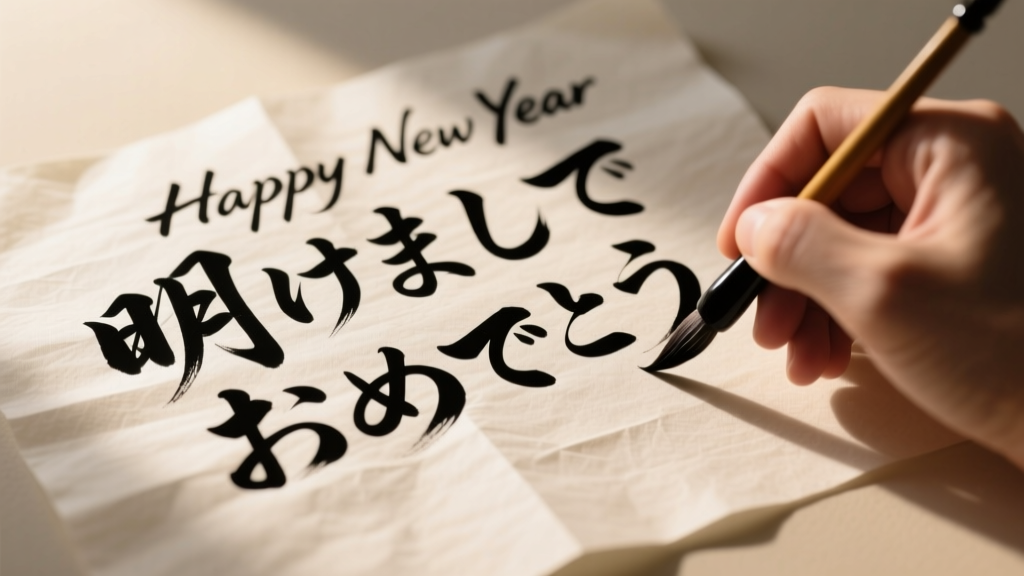 Happy New Year
明けまして
おめでとう